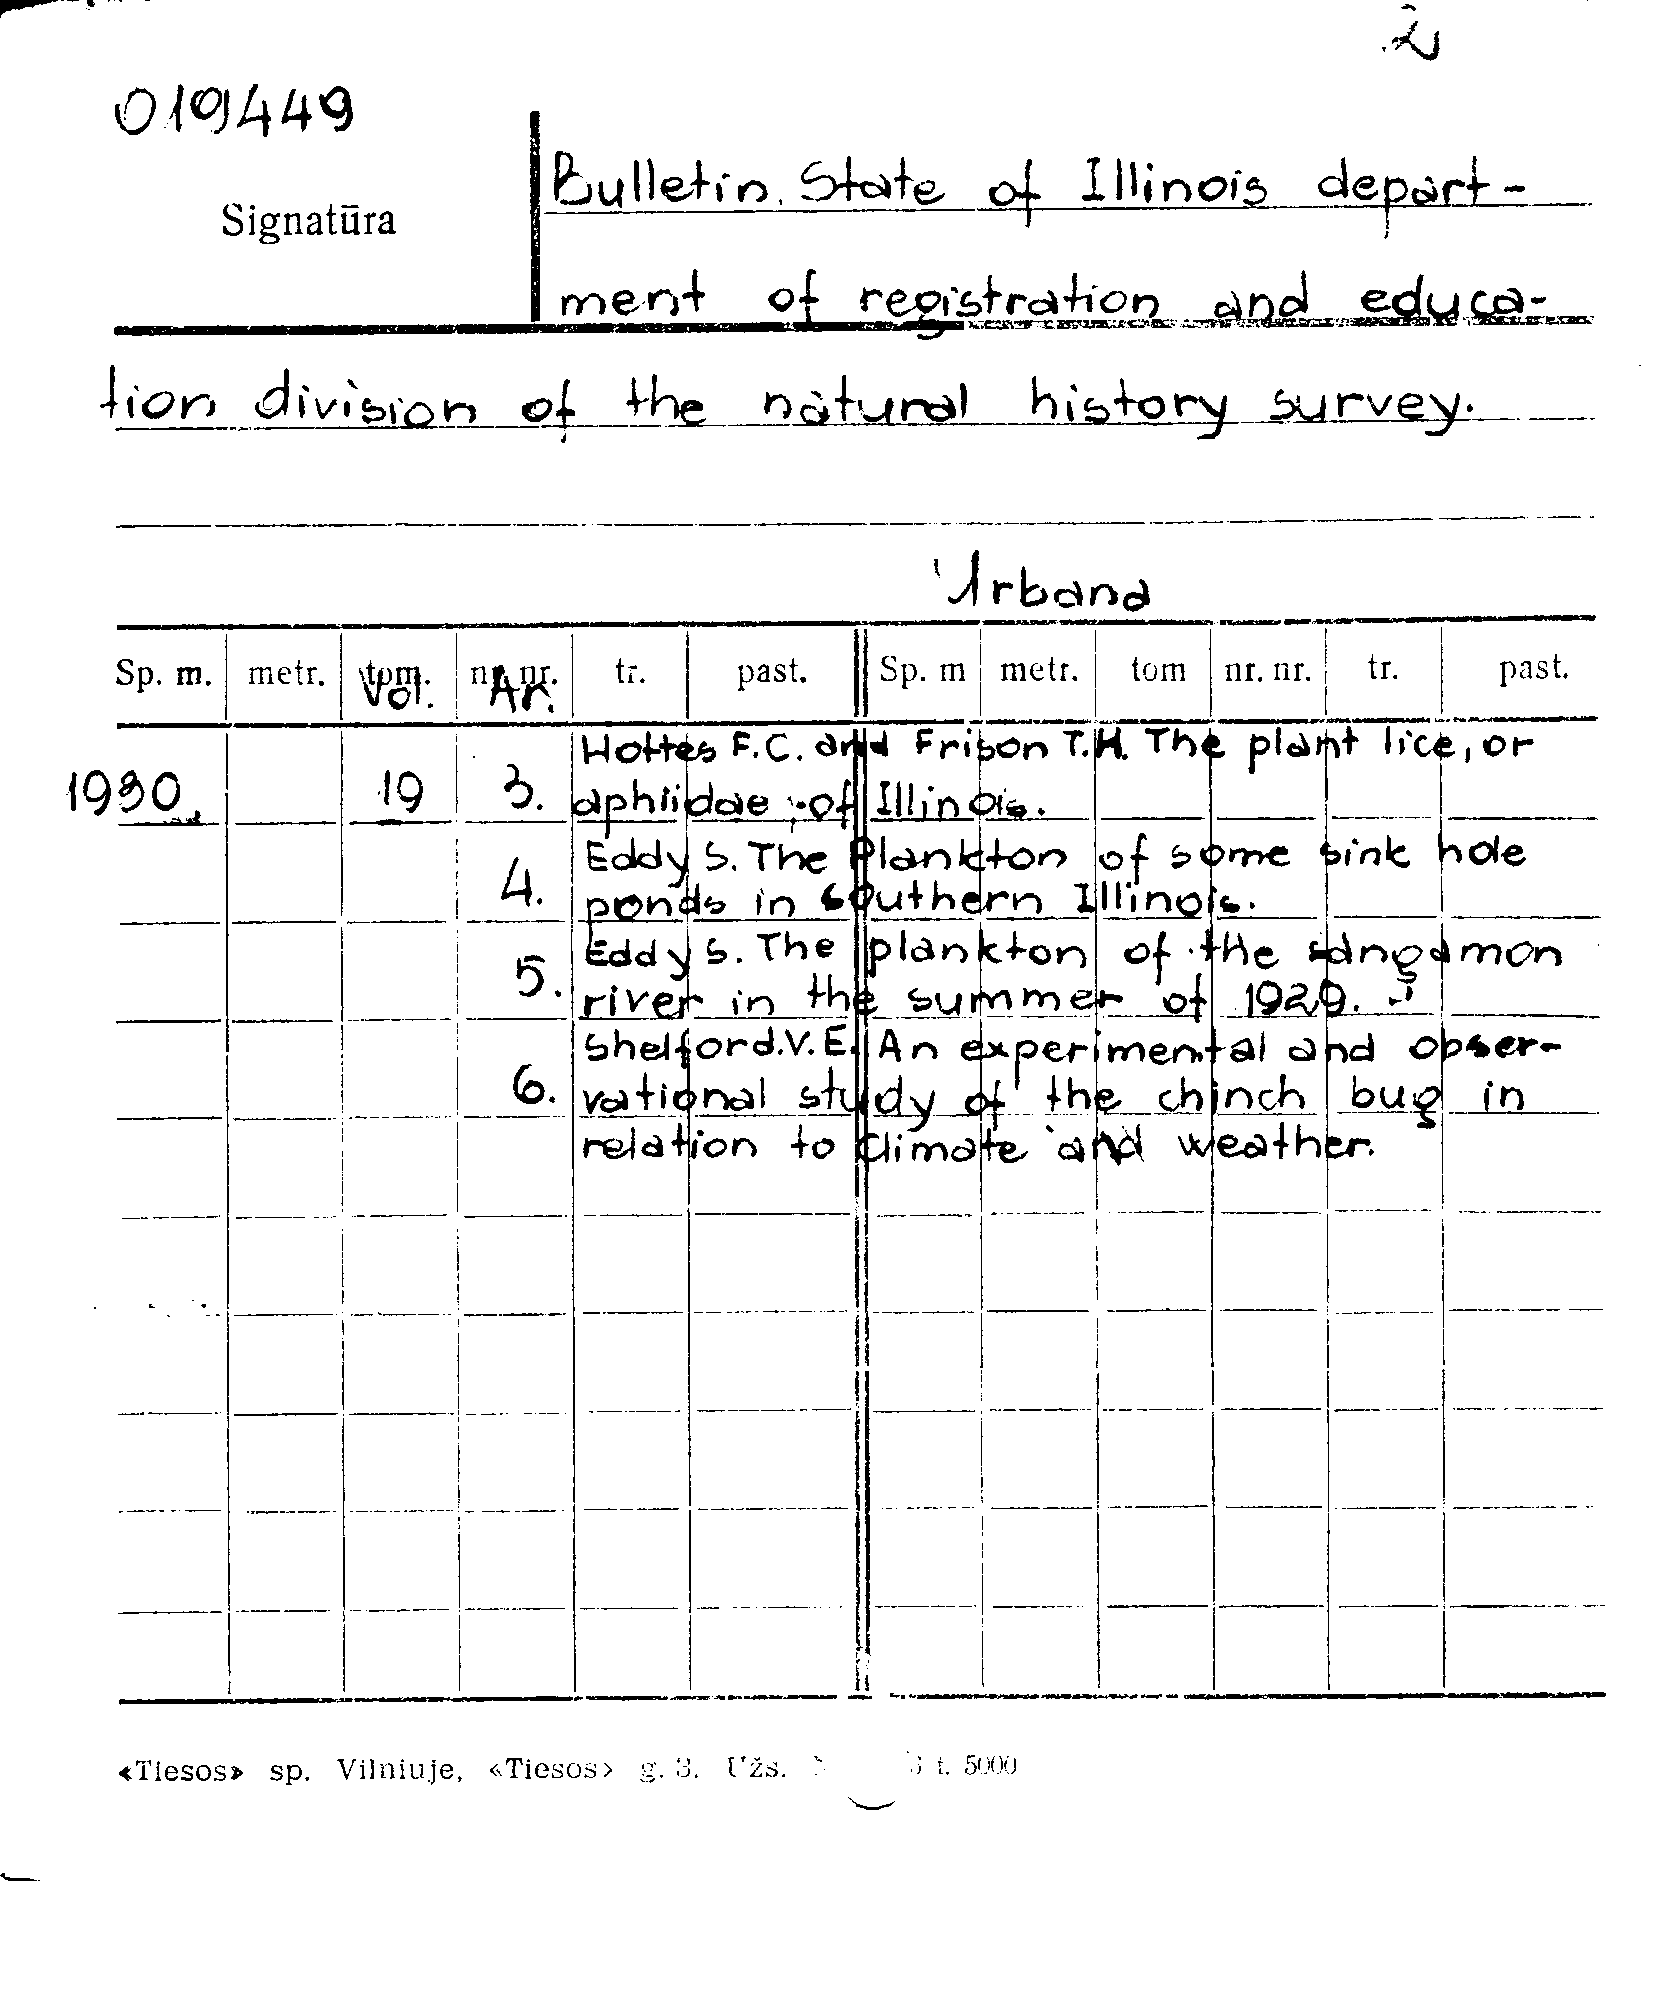 2
019449
Signatūra
Bulletin. State of Illinois depart-
ment of registration and educa-
tion division of the natural history survey.
Urbana
Sp. m. metr. tom. nr. nr. tr. past. Sp. m metr. tom nr. nr. tr. past.
Vol. Ar.
Hottes F.C. and Frison T.H. The plant lice, or
1930. 19 3. aphiidae, of Illinois.
Eddy S. The Plankton of some sink hole
4. ponds in southern Illinois.
Eddy S. The plankton of the sangamon
5. river in the summer of 1929.
Shelford.V.E. An experimental and obser-
6. vational study of the chinch bug in
relation to climate and weather.
«Tiesos» sp. Vilniuje, «Tiesos» g. 3. Užs. t. 5000